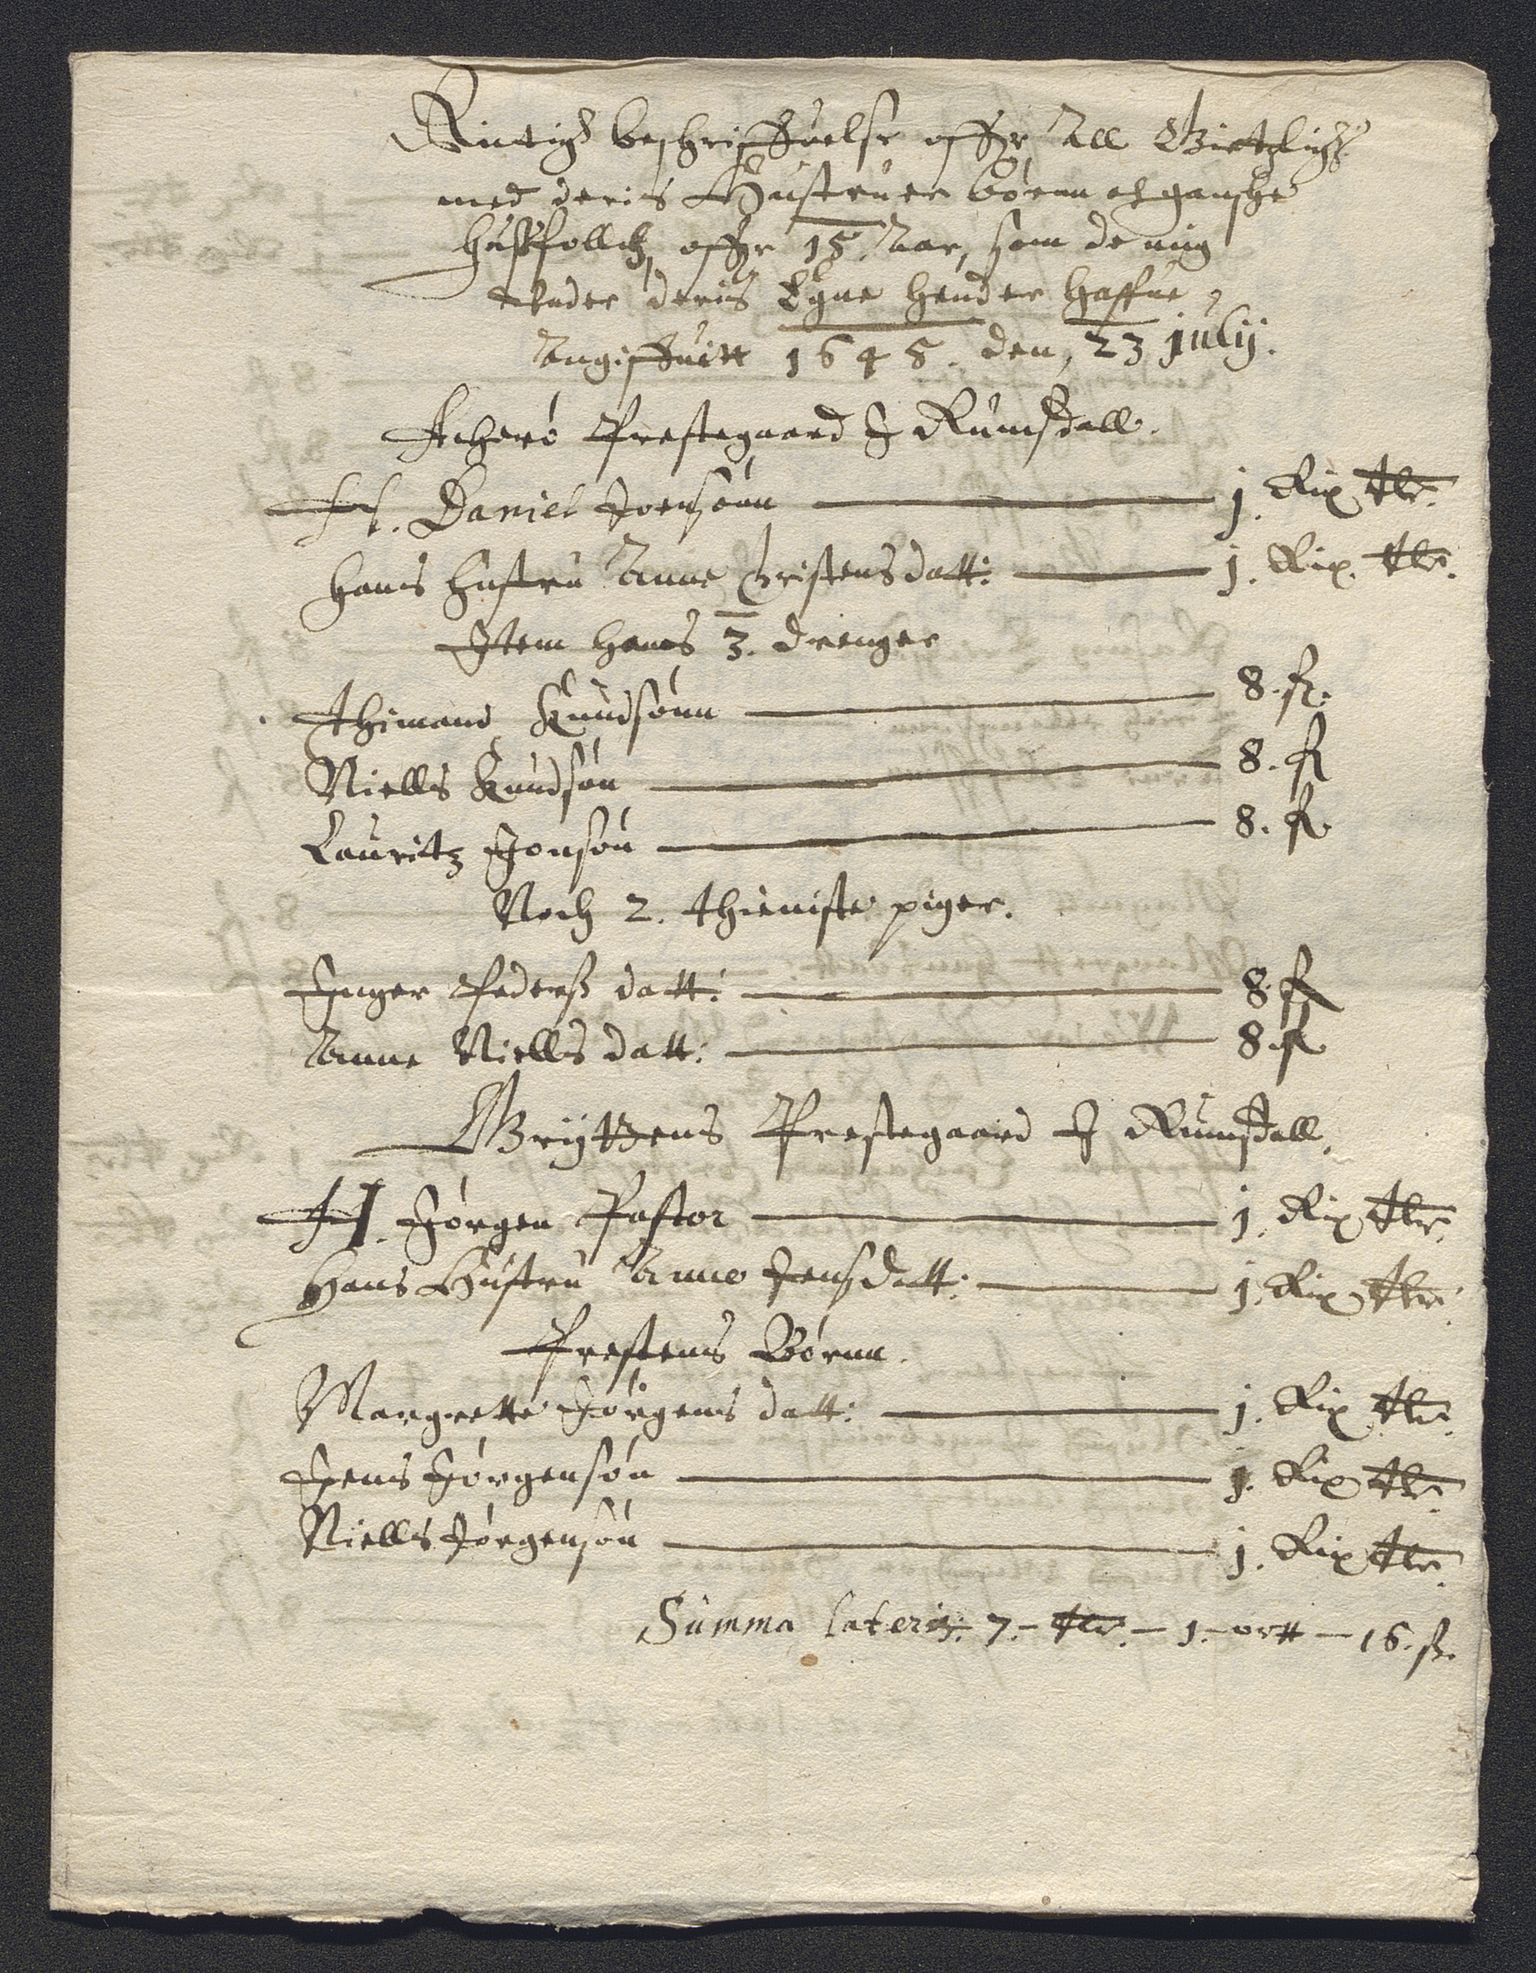 Rigtigh beschriffuelse offuer All Giestlighed
med deris Hustruer børnn och ganske
hussfollch, offuer 15 Aar, som de mig
Vnder deris Egne hender haffue,
Angiffuitt 1645. den, 23 julij.
Acherø Prestegaard J Rumsdall.
H. Daniel Joensønn — j. Rix dlr.
hans hustru Anne Christens datt: — j. Rix. dlr.
Jtem hans 3. drenger
Thimand Knudsønn — 8. ß.
Niells Knudsøn — 8. ß
Lauritz Jonsøn — 8. ß
Noch 2. thieniste piger.
Jnger Pederß datt: — 8. ß
Anne Niells datt: — 8. ß
Gryttens Prestegaard J Rumsdall.
H. Jørgen Pastor — j. Rix dlr.
Hans Hustru Anne Jensdatt: — j. Rix dlr.
Prestens Børnn.
Margrette Jørgens datt: — j. Rix dlr.
Jens Jørgensøn — j. Rix dlr.
Niells Jørgensøn — j. Rix dlr.
Summa lateris: 7.- dlr. - 1.- ortt - 16. ß.